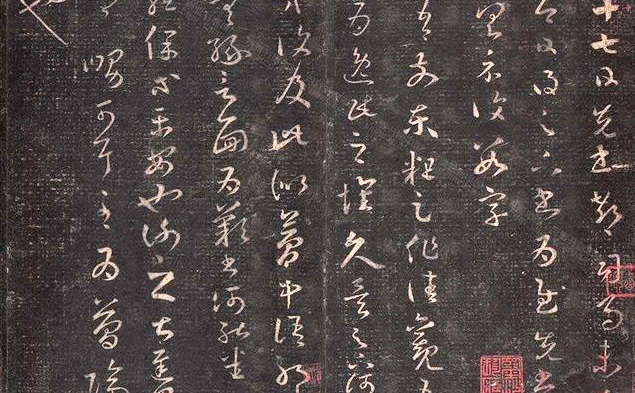 十七日先書郗司馬未
日得足下書為慰先書
具示復數字
吾前東粗足作佳觀吾
為逸民之懷久矣足下何
方復及此似夢中語耶
無緣言面為歎書何能悉
龍保等平安也謝之甚遲
舅可耳至為簡隔
也